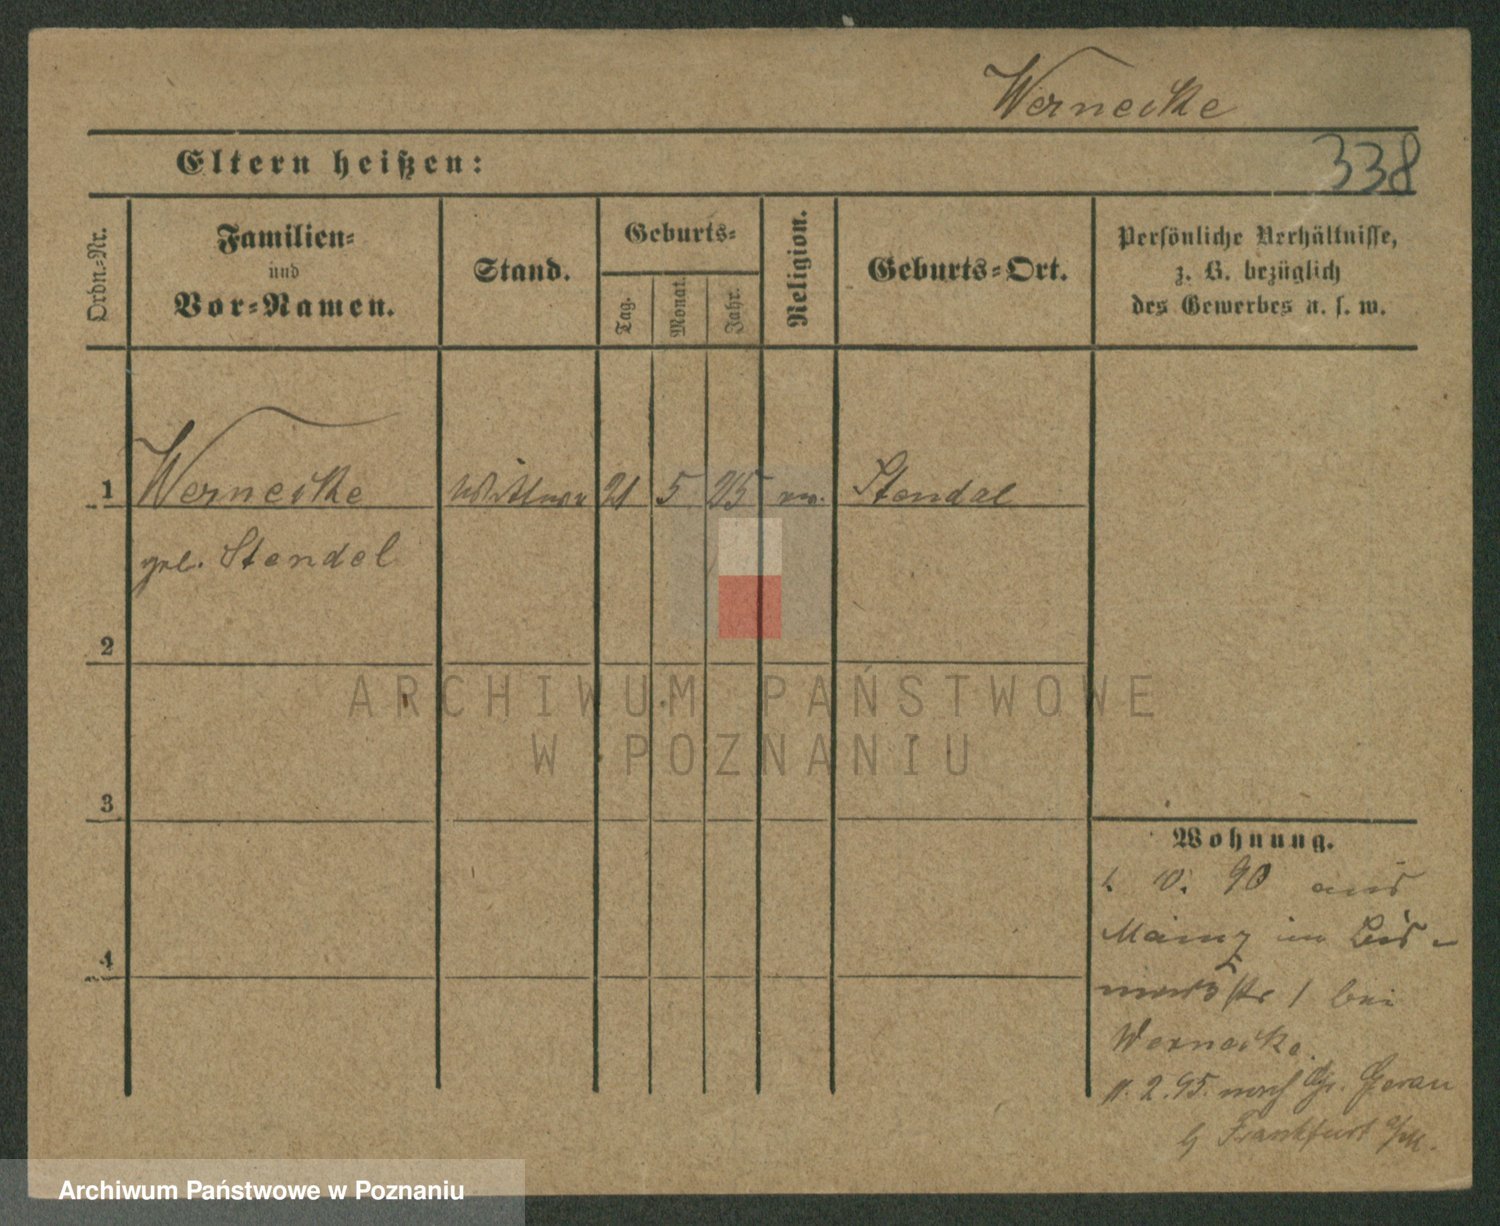 Wernecke
Eltern heißen:
338
Ordn.-Nr.
Familien-
und
Vor-Namen.
Stand.
Geburts-
Tag.
Monat.
Jahr.
Religion.
Geburts-Ort.
Persönliche Verhältnisse,
z. B. bezüglich
des Gewerbes u. s. w.
1 Wernecke Wittwe 21 5 25 ev. Stendal
geb. Stendel
2
ARCHIWUM PAŃSTWOWE
W POZNANIU
3
Wohnung.
1. 10. 90 aus
Mainz in Bis-
marckstr 1 bei
4
Wernecke.
11. 2. 95. nach Gr. Gerau
b Frankfurt a/M.
Archiwum Państwowe w Poznaniu